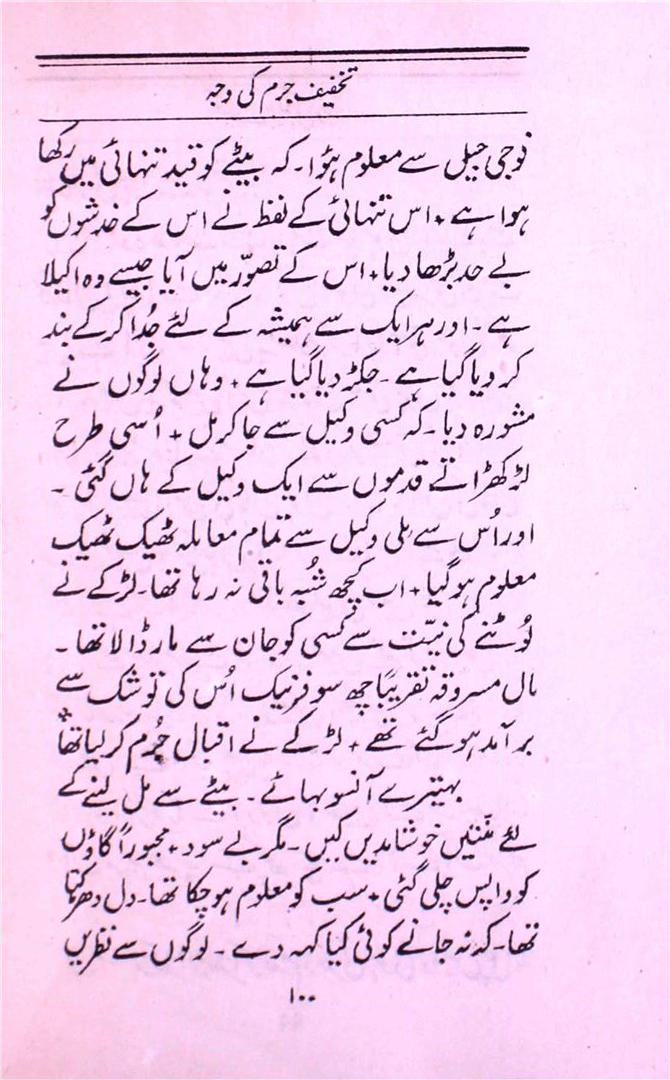 تخفیف جرم کی وجہ
فوجی جیل سے معلوم ہؤا۔ کہ بیٹے کو قید تنہائی میں رکھا
ہوا ہے + اس تنہائی کے لفظ نے اس کے خدشوں کو
بے حد بڑھا دیا + اس کے تصوّر میں آیا جیسے وہ اکیلا
ہے۔ اور ہر ایک سے ہمیشہ کے لئے جُدا کر کے بند
کر دیا گیا ہے۔ جکڑ دیا گیا ہے + وہاں لوگوں نے
مشورہ دیا۔ کہ کسی وکیل سے جا کر مل + اُسی طرح
لڑکھڑاتے قدموں سے ایک وکیل کے ہاں گئی۔
اور اُس سے ملی وکیل سے تمام معاملہ ٹھیک ٹھیک
معلوم ہو گیا + اب کچھ شُبہ باقی نہ رہا تھا۔ لڑکے نے
لُوٹنے کی نیّت سے کسی کو جان سے مار ڈالا تھا۔
مال مسروقہ تقریباً چھ سو فرنیک اُس کی توشک سے
برآمد ہو گئے تھے + لڑکے نے اقبال جُرم کر لیا تھا +
بہتیرے آنسو بہائے۔ بیٹے سے مل لینے کے
لئے منّتیں خوشامدیں کیں۔ مگر بے سود + مجبوراً گاؤں
کو واپس چلی گئی + سب کو معلوم ہو چکا تھا۔ دل دھڑکتا
تھا۔ کہ نہ جانے کوئی کیا کہہ دے۔ لوگوں سے نظریں
۱۰۰